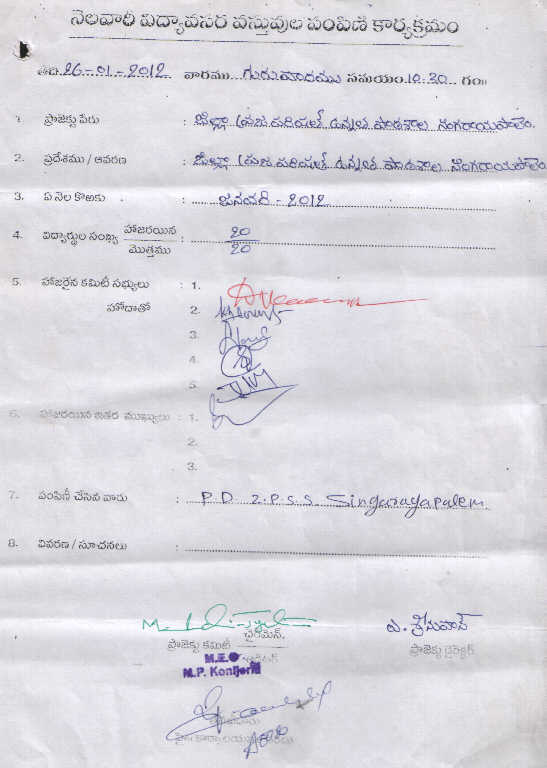 నెలవారీ విద్యావసర వస్తువుల పంపిణీ కార్యక్రమం
తేది 26-01-2012 వారము గురువారము సమయం 10.30 గం॥
1. ప్రాజెక్టు పేరు : జిల్లా ప్రజా పరిషత్ ఉన్నత పాఠశాల సింగరాయపాలెం.
2. ప్రదేశము / ఆవరణ : జిల్లా ప్రజా పరిషత్ ఉన్నత పాఠశాల సింగరాయపాలెం
3. ఏ నెల కొఱకు : జనవరి - 2012
4. విద్యార్థుల సంఖ్య హాజరయిన : 20
మొత్తము 20
5. హాజరైన కమిటీ సభ్యులు : 1.
హోదాతో 2.
3.
4.
5.
6. హాజరయిన ఇతర ముఖ్యులు : 1.
2.
3.
7. పంపిణీ చేసిన వారు : P.D Z.P.S.S. Singarayapalem.
8. వివరణ / సూచనలు :
ప్రాజెక్టు కమిటీ ఛైర్మెన్. ఎ. శ్రీనివాస్
ప్రాజెక్టు డైరెక్టర్
M.E.O
M.P. Konijerla